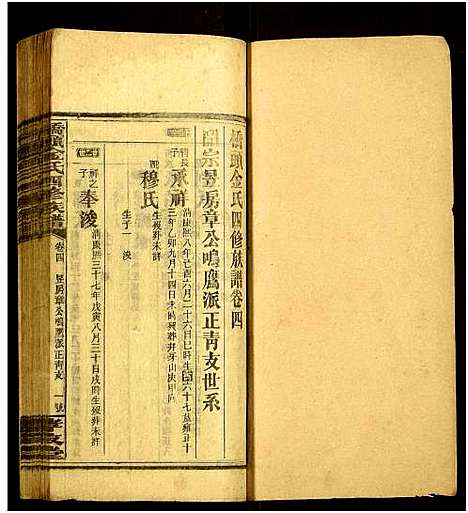 橋頭金氏四修族譜卷四
宗昱房章公鳴鷹派正青支世系
長子 承祥 清康熙八年己酉六月二十六日巳時生 六十七 雍正十
三年乙卯九月十四日未時歿葬牙山庚甲向
配 穆氏 生歿葬未詳
生子一 浚
祥之子 奉浚 清康熙三十七年戊寅八月二十日戌時生歿葬未詳
橋頭金氏四修族譜 卷四 昱房章公鳴鷹派正青支 一號